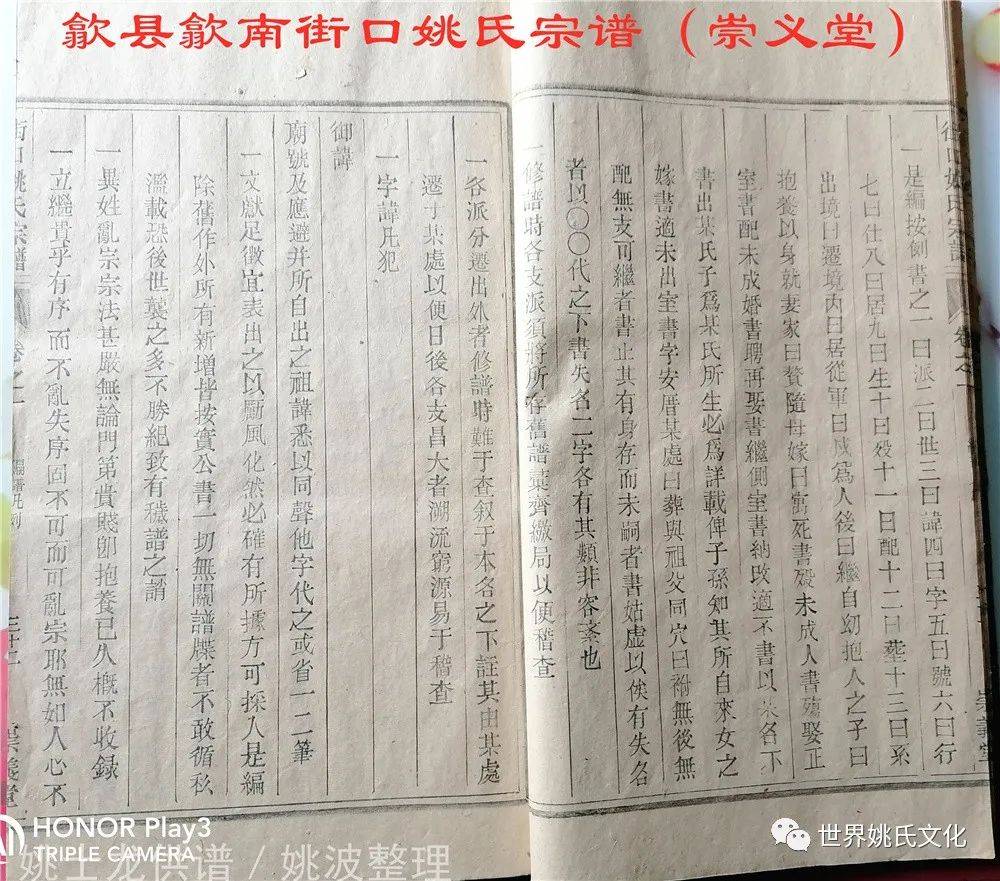 歙县歙南街口姚氏宗谱（崇义堂）
街口姚氏宗譜 卷之一 崇義堂
一是編按例書之一曰派二曰世三曰諱四曰字五曰號六曰行
七曰仕八曰居九曰生十曰歿十一曰配十二曰塟十三曰系
出境曰遷境内曰居從軍曰戍爲人後曰繼自幼抱人之子曰
抱養以身就妻家曰贅隨母嫁曰寄死書殁未成人書殤娶正
室書配未成婚書聘再娶書繼側室書納改適不書以某各下
書出某氏子爲某氏所生必爲詳載俾子孫知其所自來女之
嫁書適未出室書字安厝某處曰葬與祖父同穴曰祔無後無
配無支可繼者書止其有身存而未嗣者書姑虚以俟有失名
者以〇〇代之下書失名二字各有其類非容紊也
一修譜時各支派須將所存舊譜彚齊繳局以便稽查
一各派分遷出外者修譜時難于查叙于本名之下註其由某處
遷于某處以便日後各支昌大者溯流窮源易于稽查
一字諱凡犯
御諱
廟號及應避并所自出之祖諱悉以同聲他字代之或省一二筆
一文獻足徵宜表出之以勵風化然必確有所據方可採入是編
除舊作外所有新增皆按實公書一切無關譜牒者不敢循私
濫載恐後世襲之多不勝紀致有穢譜之誚
一異姓亂宗宗法甚嚴無論門第貴賤卽抱養已久概不收錄
一立繼貴乎有序而不亂失序固不可而可亂宗耶無如人心不
街口姚氏宗譜 卷之一 編譜凡例 三十二 崇義堂
HONOR Play3
TRIPLE CAMERA
姚士龙供谱 / 姚波整理
世界姚氏文化